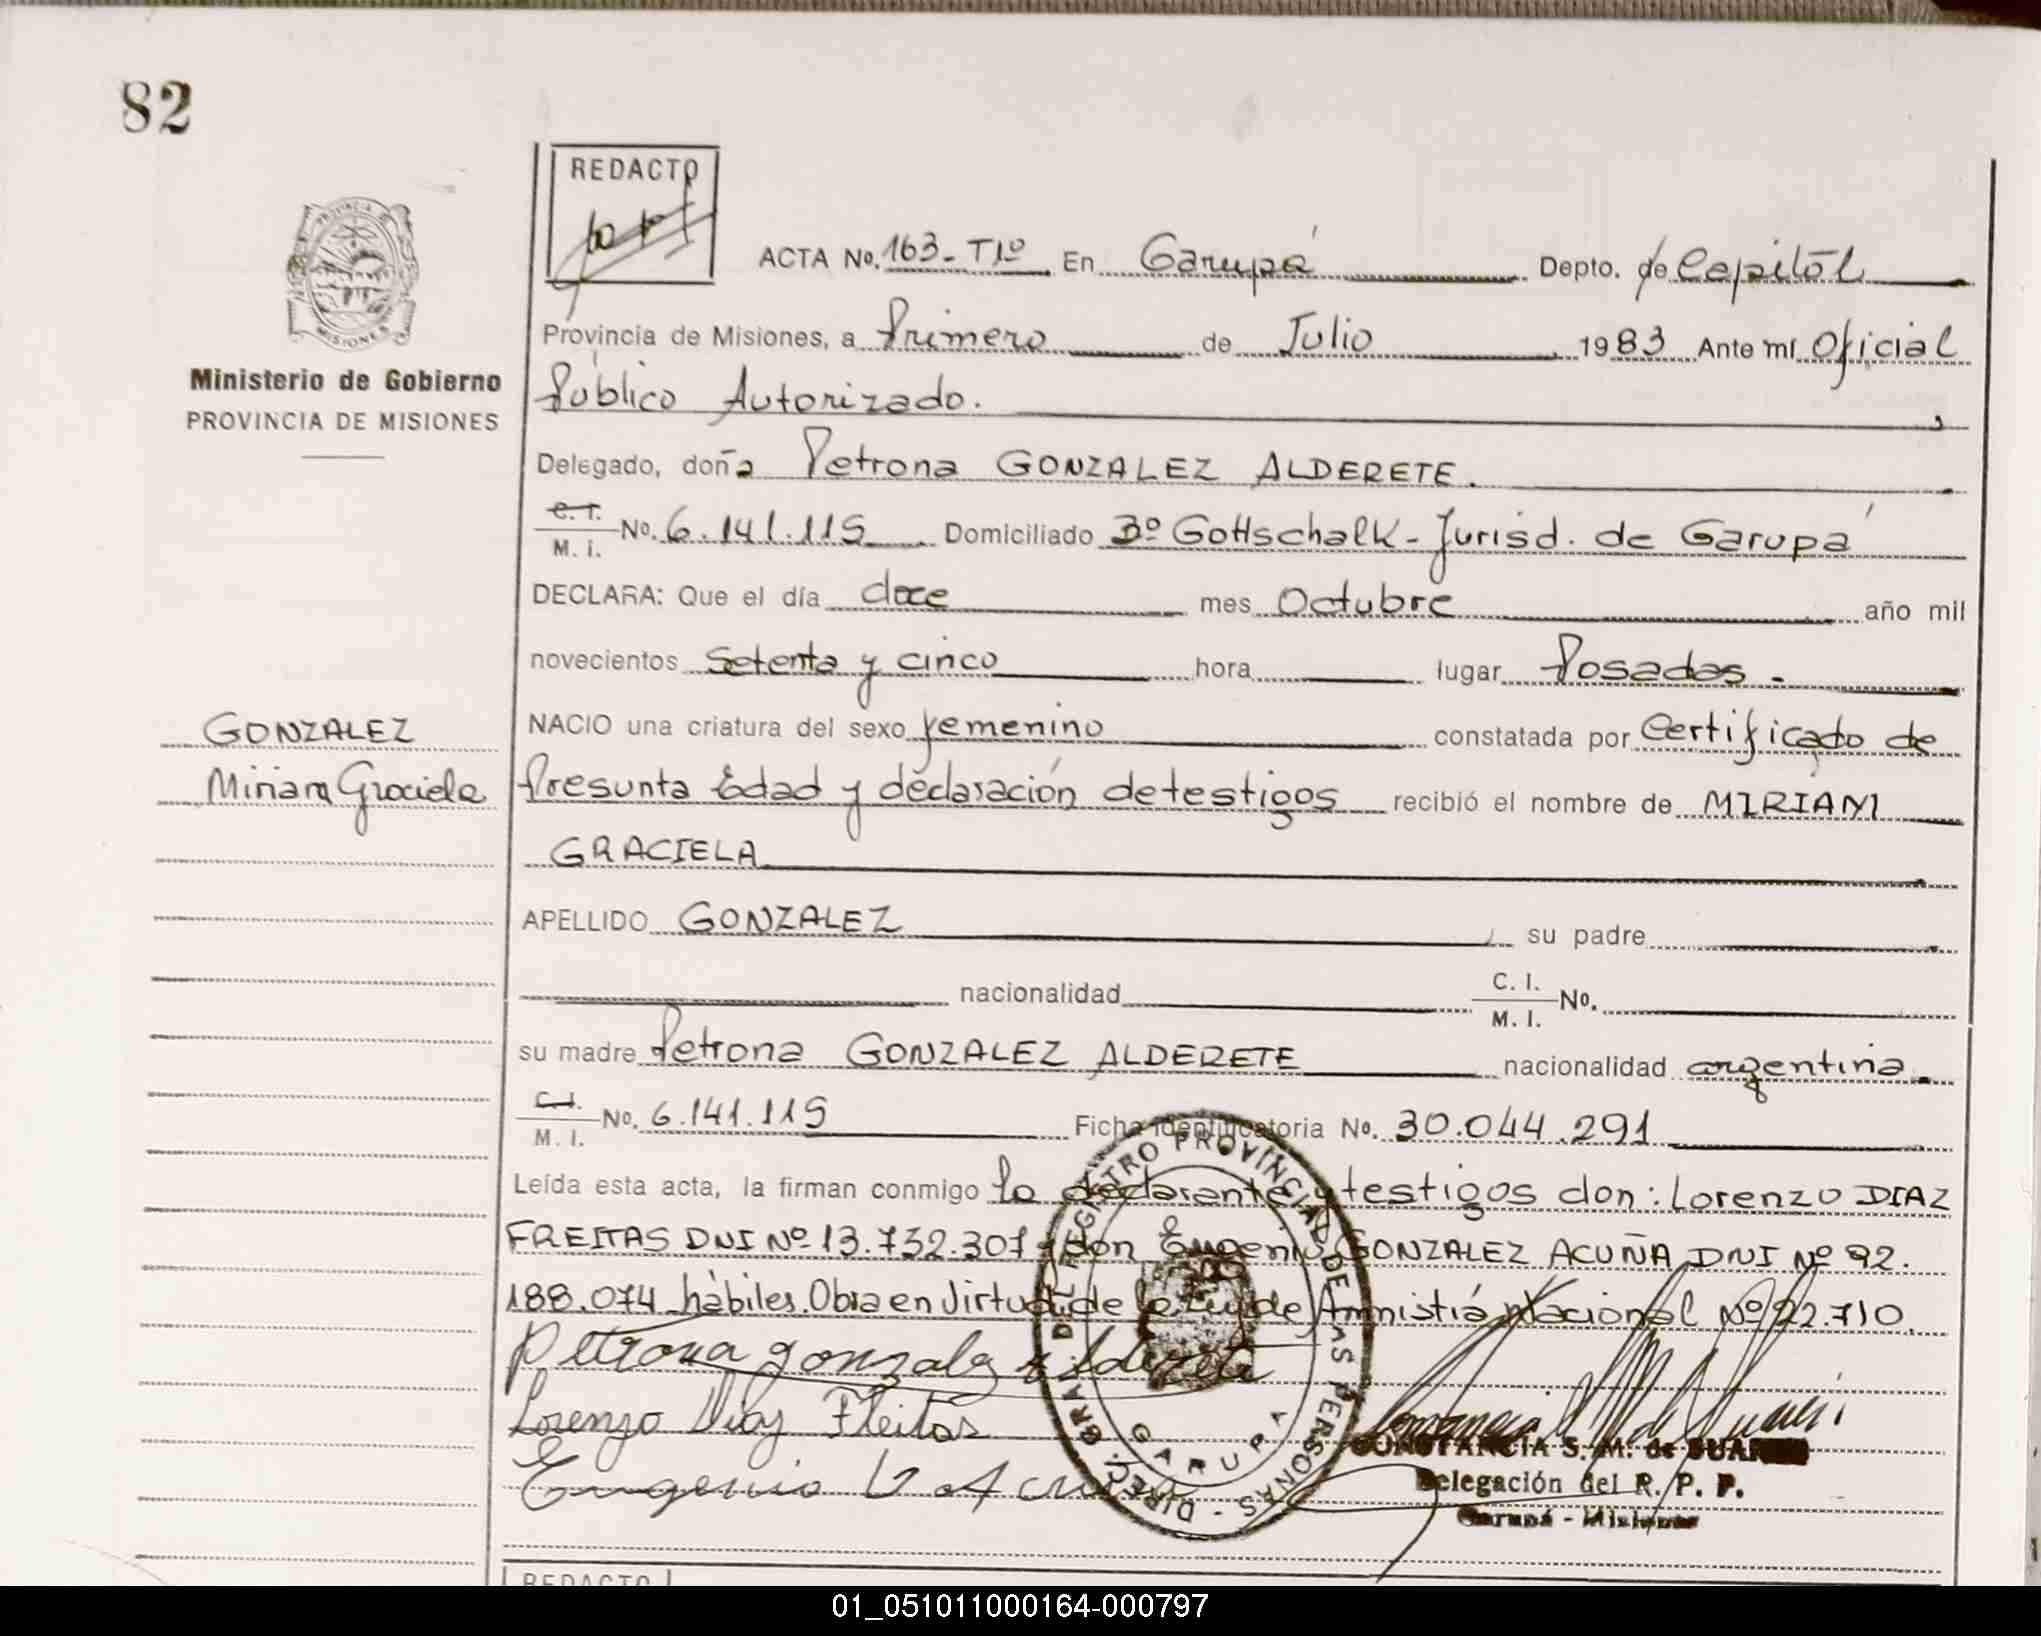 82
REDACTO
PROVINCIA DE
MISIONES
Ministerio de Gobierno
PROVINCIA DE MISIONES
ACTA No. 163-T1º En Garupá Depto. de Capital
Provincia de Misiones, a Primero de Julio 1983 Ante mí Oficial
Público Autorizado.
Delegado, doña Petrona GONZALEZ ALDERETE.
C. I. M. I. No. 6.141.115 Domiciliado Bº Gottschalk-Jurisd. de Garupá
DECLARA: Que el día doce mes Octubre año mil
novecientos Setenta y cinco hora lugar Posadas.
NACIO una criatura del sexo femenino constatada por Certificado de
Presunta Edad y declaración de testigos recibió el nombre de MIRIAM
GRACIELA
GONZALEZ
Miriam Graciela
APELLIDO GONZALEZ su padre
nacionalidad C. I. M. I. No.
su madre Petrona GONZALEZ ALDERETE nacionalidad argentina.
C. I. M. I. No. 6.141.115 Ficha Identificatoria No. 30.044.291
Leída esta acta, la firman conmigo la declarante y testigos don: Lorenzo DIAZ
FREITAS DNI Nº 13.732.307 y don Eugenio GONZALEZ ACUÑA DNI Nº 92.
188.074 hábiles. Obra en Virtud de la Ley de Amnistía Nacional Nº 22.710.
Petrona gonzalez Alderete
Lorenzo Diaz Fleitas
Eugenio
DIREC. GRAL. DEL REGISTRO PROVINCIAL DE LAS PERSONAS -
GARUPA
CONSTANCIA S. M. de
Delegación del R. P. P.
Garupá - Misiones
REDACTO
01_051011000164-000797